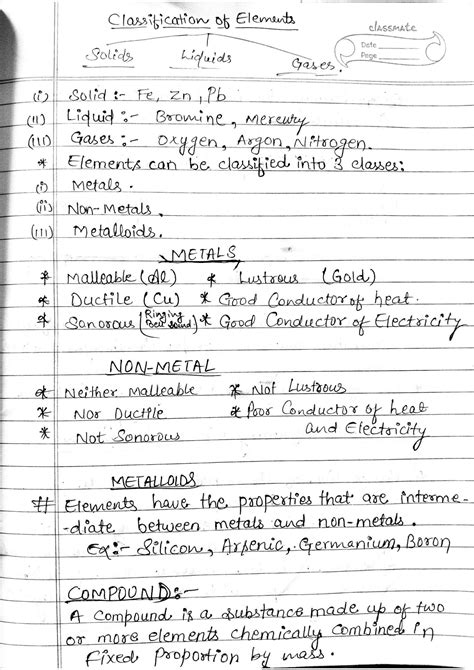 Classification of Elements
classmate
Date
Page
Solids Liquids Gases.
(i) Solid :- Fe, Zn, Pb
(ii) Liquid :- Bromine, Mercury
(iii) Gases :- Oxygen, Argon, Nitrogen.
* Elements can be classified into 3 classes:
(i) Metals.
(ii) Non-Metals.
(iii) Metalloids.
METALS
* Malleable (Al) * Lustrous (Gold)
* Ductile (Cu) * Good Conductor of heat.
* Sonorous (Ringing Bell sound) * Good Conductor of Electricity
NON-METAL
* Neither Malleable * Not Lustrous
* Nor Ductile * Poor Conductor of heat
* Not Sonorous and Electricity
METALLOIDS
# Elements have the properties that are interme-
-diate between metals and non-metals.
Ex:- Silicon, Arsenic, Germanium, Boron
COMPOUND:-
A compound is a substance made up of two
or more elements chemically combined in
fixed proportion by mass.